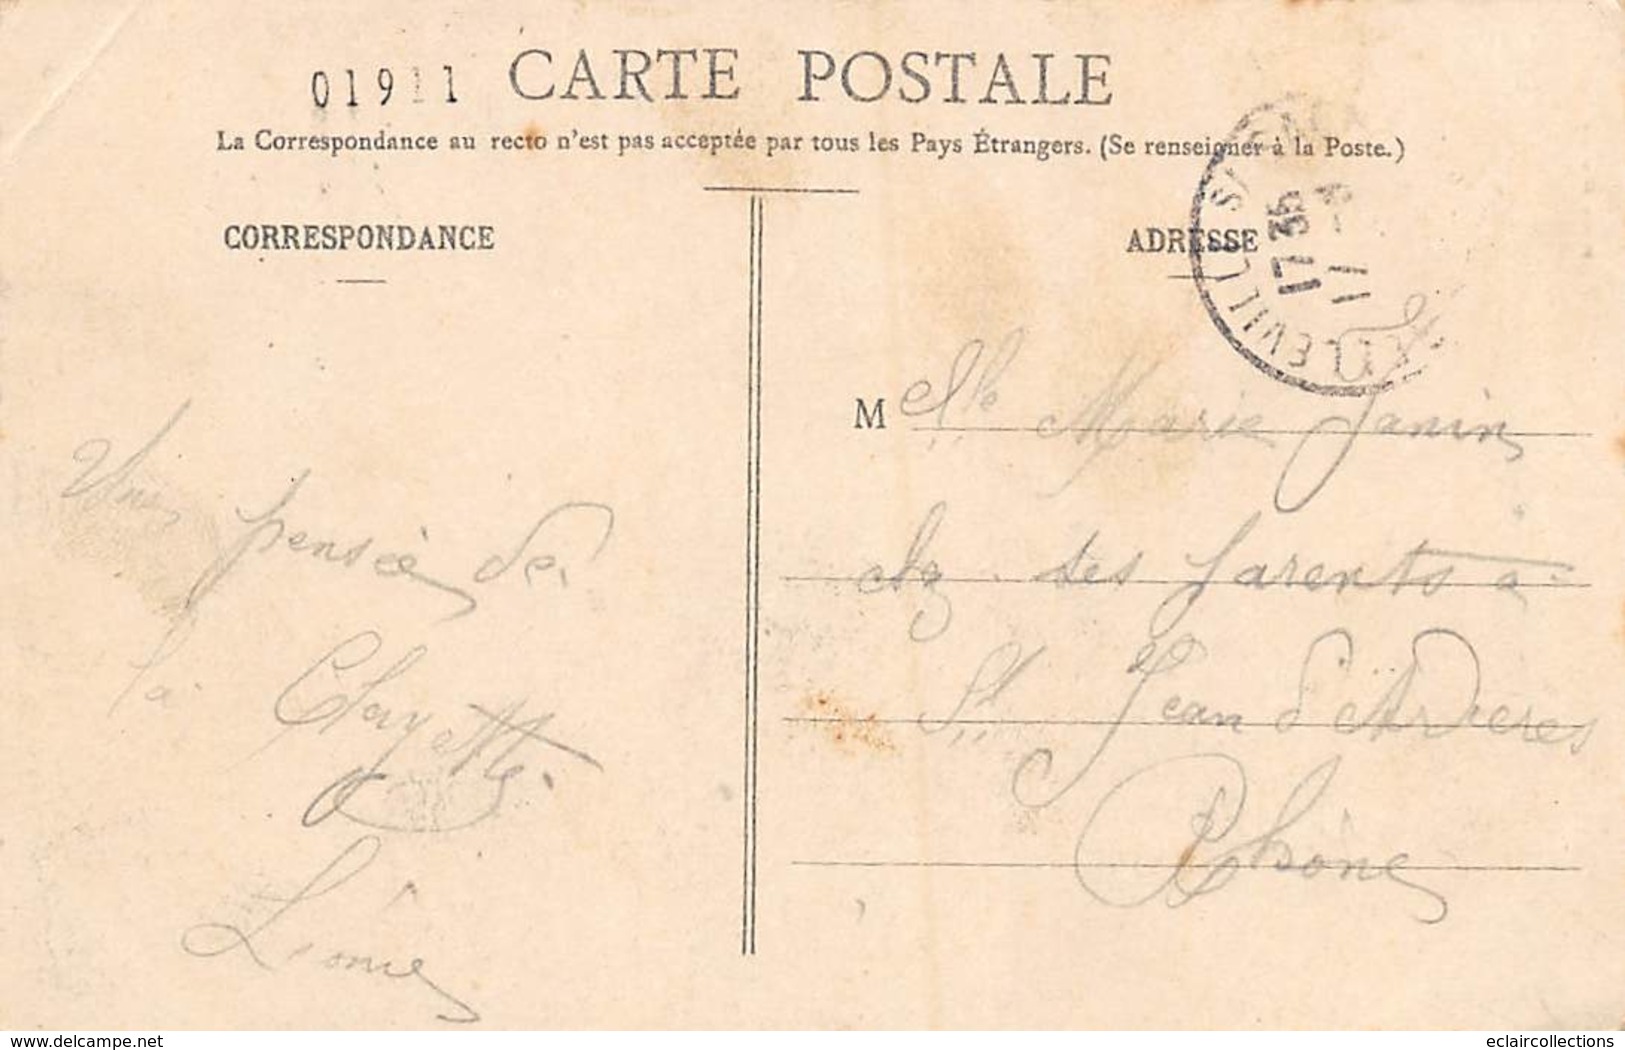 01911 CARTE POSTALE
La Correspondance au recto n'est pas acceptée par tous les Pays Étrangers. (Se renseigner à la Poste.)
CORRESPONDANCE
Une pensée de
la Clayette
Léonie
ADRESSE
17 35
11
LLEVILL S/ SAÔ
M elle Marie Janin
chz ses parents à
St Jean d'Ardieres
Rhône
www.delcampe.net
eclaircollections